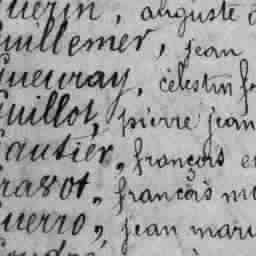 uerin, auguste
uillemer, jean
ueuray, célestin
uillot, pierre jean
autier, françois
ravot, françois
uerro, jean mari